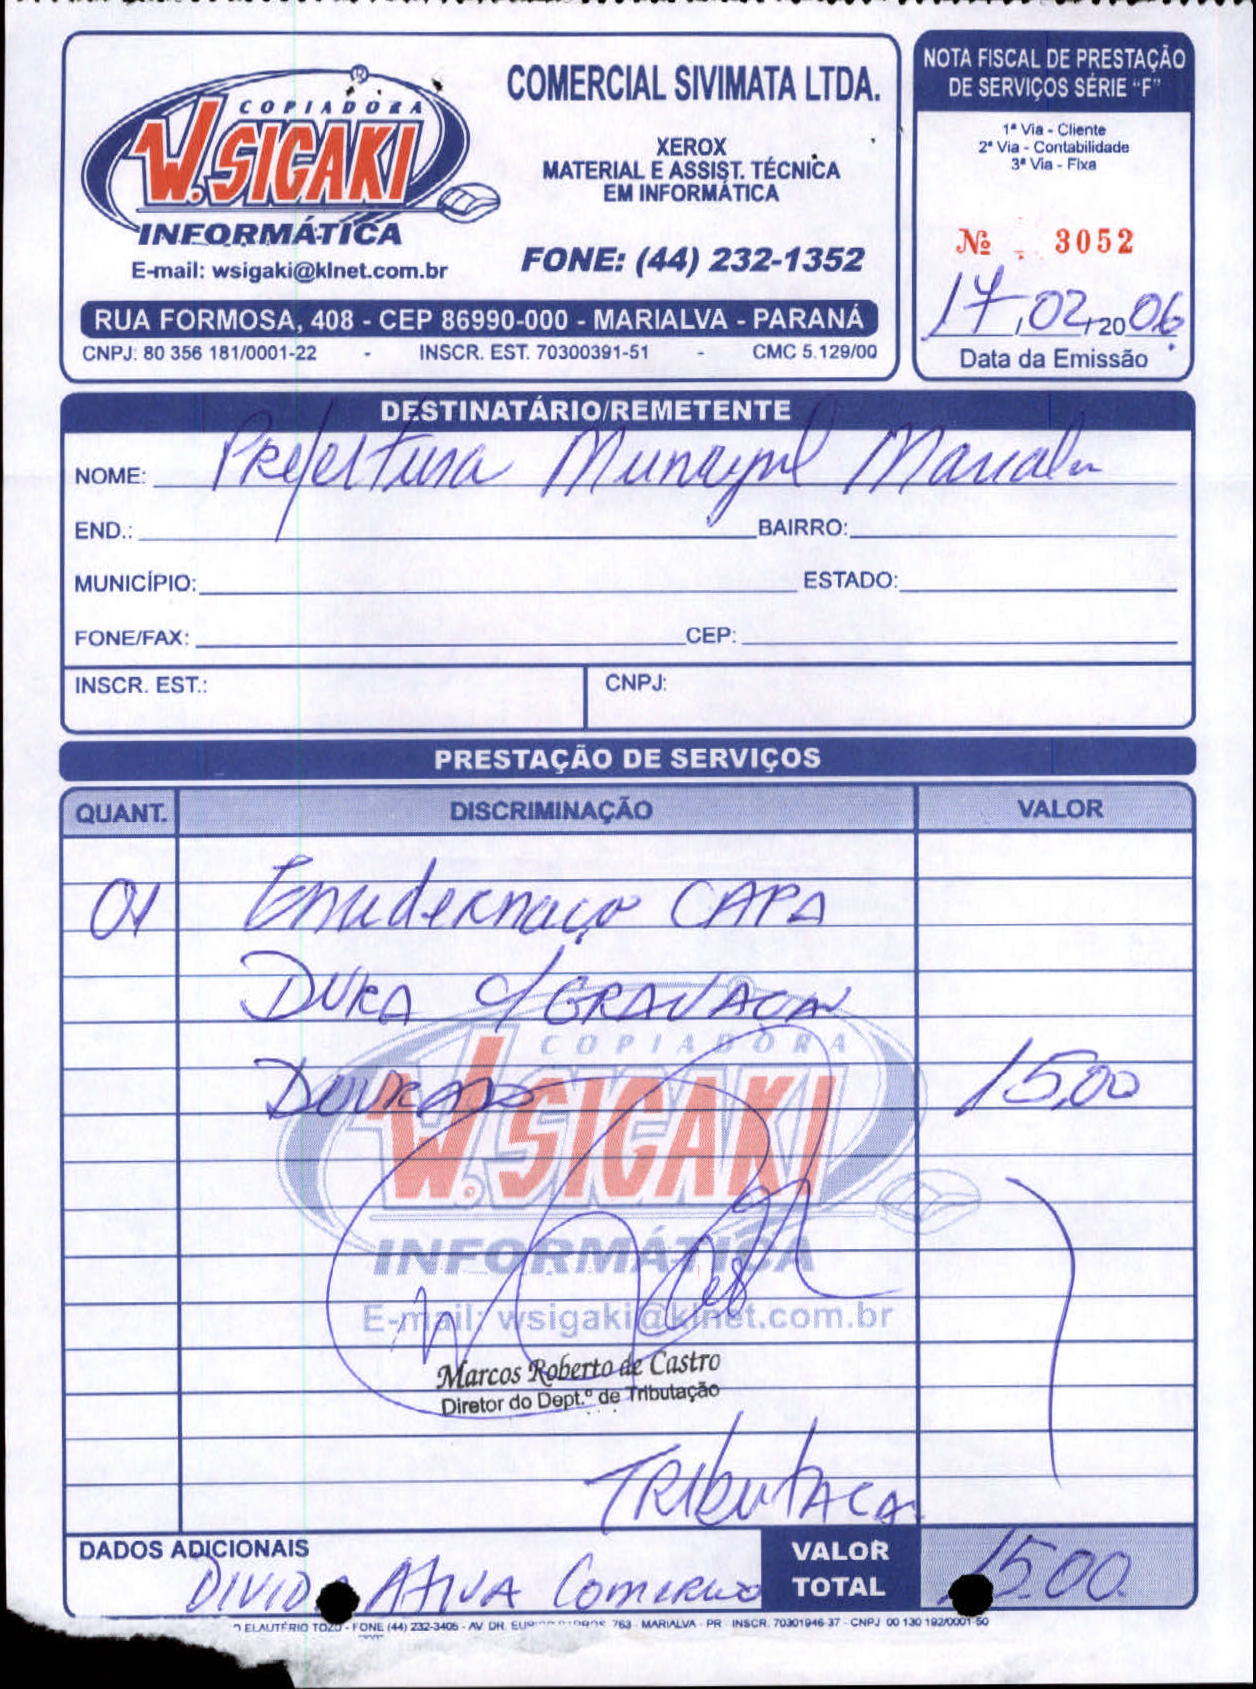 COPIADORA
W.SIGAKI
INFORMÁTICA
E-mail: wsigaki@klnet.com.br
COMERCIAL SIVIMATA LTDA.
XEROX
MATERIAL E ASSIST. TÉCNICA
EM INFORMÁTICA
FONE: (44) 232-1352
RUA FORMOSA, 408 - CEP 86990-000 - MARIALVA - PARANÁ
CNPJ: 80 356 181/0001-22 - INSCR. EST. 70300391-51 - CMC 5.129/00
NOTA FISCAL DE PRESTAÇÃO
DE SERVIÇOS SÉRIE "F"
1ª Via - Cliente
2ª Via - Contabilidade
3ª Via - Fixa
Nº 3052
17/02/2006
Data da Emissão
DESTINATÁRIO/REMETENTE
NOME: Prefeitura Municipal Marialva
END.: BAIRRO:
MUNICÍPIO: ESTADO:
FONE/FAX: CEP:
INSCR. EST.: CNPJ:
PRESTAÇÃO DE SERVIÇOS
QUANT. DISCRIMINAÇÃO VALOR
01 CAPA
DURA c/ GRAVAÇÃO
COPIADORA
DOURADO 15,00
W.SIGAKI
INFORMÁTICA
E-mail: wsigaki@klnet.com.br
Marcos Roberto de Castro
Diretor do Dept.º de Tributação
DADOS ADICIONAIS
ATIVA
VALOR
TOTAL 15,00
ELAUTÉRIO TOZO - FONE (44) 232-3405 - AV DR. 763 - MARIALVA - PR - INSCR. 70301946-37 - CNPJ 00 130 192/0001-50